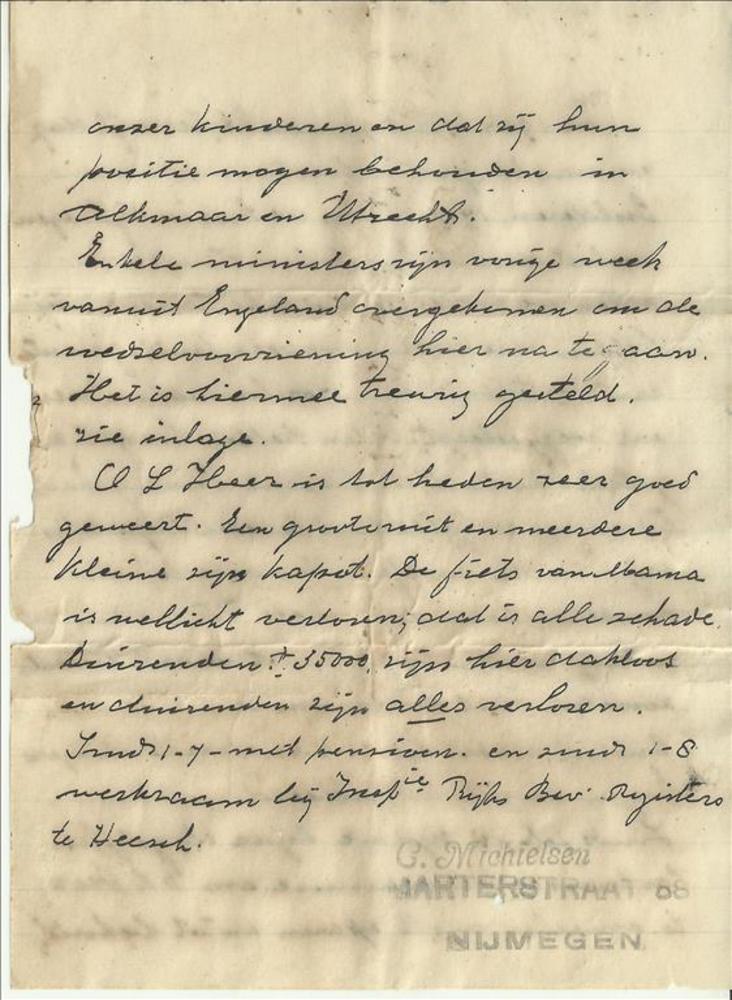 onzer kinderen en dat zij hun
positie mogen behouden in
Alkmaar en Utrecht.
Enkele ministers zijn vorige week
vanuit Engeland overgekomen om de
voedselvoorziening hier na te gaan.
Het is hiermee treurig gesteld.
zie inlage.
O L Heer is tot heden zeer goed
geweest. Een groote ruit en meerdere
kleine zijn kapot. De fiets van Mama
is wellicht verloren; dat is alle schade.
Duizenden ± 35000, zijn hier dakloos
en duizenden zijn alles verloren.
Sinds 1-7- met pensioen. en sinds 1-8
werkzaam bij Inspie Rijks Bev. Registers
te Heesch.
G. Michielsen
NIJMEGEN